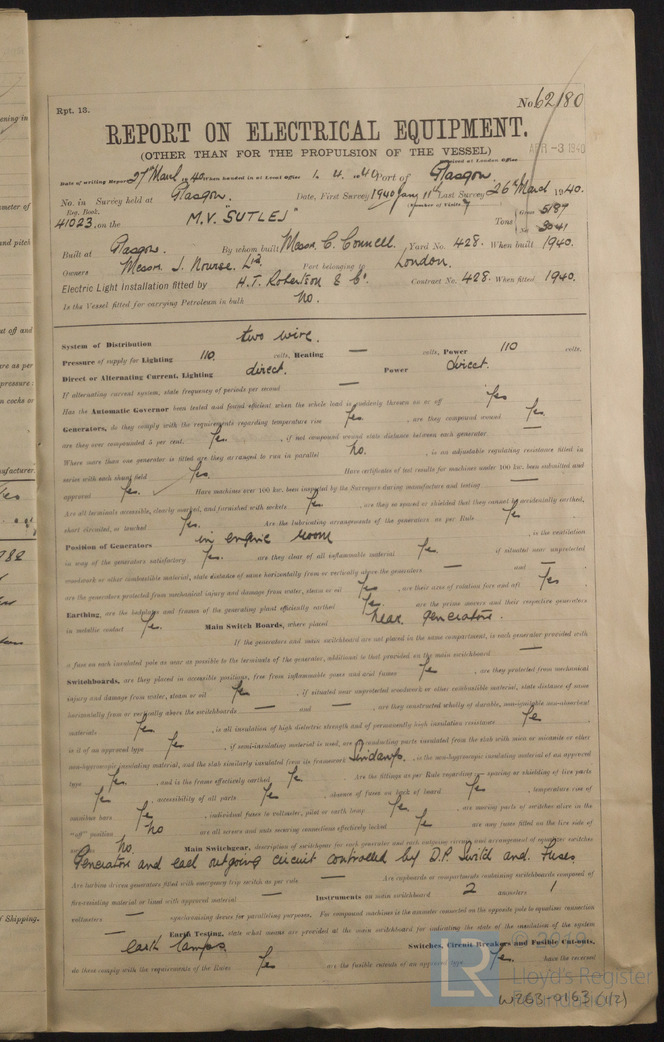 Rpt. 13.
No. 62180
REPORT ON ELECTRICAL EQUIPMENT.
(OTHER THAN FOR THE PROPULSION OF THE VESSEL)
APR -3 1940
Received at London Office
Date of writing Report 27th March 1940 When handed in at Local Office 1. 4. 40 Port of Glasgow.
No. in Survey held at Glasgow. Date, First Survey 1940 Jany 11th Last Survey 26th March 1940.
Reg. Book. (Number of Visits 7
41023. on the M.V. "SUTLEJ" Tons Gross 5189 Net 3041
Built at Glasgow. By whom built Messrs. C. Connell. Yard No. 428. When built 1940.
Owners Messrs. J. Nourse. Ltd Port belonging to London.
Electric Light Installation fitted by H.T. Robertson & Co. Contract No. 428. When fitted 1940.
Is the Vessel fitted for carrying Petroleum in bulk no.
System of Distribution two wire.
Pressure of supply for Lighting 110. volts, Heating — volts, Power 110 volts.
Direct or Alternating Current, Lighting direct. Power direct.
If alternating current system, state frequency of periods per second —
Has the Automatic Governor been tested and found efficient when the whole load is suddenly thrown on or off Yes
Generators, do they comply with the requirements regarding temperature rise Yes, are they compound wound Yes.
are they over compounded 5 per cent. Yes., if not compound wound state distance between each generator —
Where more than one generator is fitted are they arranged to run in parallel no., is an adjustable regulating resistance fitted in
series with each shunt field Yes. Have certificates of test results for machines under 100 kw. been submitted and
approved Yes. Have machines over 100 kw. been inspected by the Surveyors during manufacture and testing —
Are all terminals accessible, clearly marked, and furnished with sockets Yes, are they so spaced or shielded that they cannot be accidentally earthed,
short circuited, or touched Yes. Are the lubricating arrangements of the generators as per Rule Yes
Position of Generators in engine room, is the ventilation
in way of the generators satisfactory Yes. are they clear of all inflammable material Yes. if situated near unprotected
woodwork or other combustible material, state distance of same horizontally from or vertically above the generators — and —
are the generators protected from mechanical injury and damage from water, steam or oil Yes, are their axes of rotation fore and aft Yes
Earthing, are the bedplates and frames of the generating plant efficiently earthed Yes. are the prime movers and their respective generators
in metallic contact Yes. Main Switch Boards, where placed near generators.
If the generators and main switchboard are not placed in the same compartment, is each generator provided with
a fuse on each insulated pole as near as possible to the terminals of the generator, additional to that provided on the main switchboard —
Switchboards, are they placed in accessible positions, free from inflammable gases and acid fumes Yes, are they protected from mechanical
injury and damage from water, steam or oil Yes, if situated near unprotected woodwork or other combustible material, state distance of same
horizontally from or vertically above the switchboards — and —, are they constructed wholly of durable, non-ignitable non-absorbent
materials Yes., is all insulation of high dielectric strength and of permanently high insulation resistance Yes
is it of an approved type Yes, if semi-insulating material is used, are all conducting parts insulated from the slab with mica or micanite or other
non-hygroscopic insulating material, and the slab similarly insulated from its framework Sindanyo, is the non-hygroscopic insulating material of an approved
type Yes., and is the frame effectively earthed Yes. Are the fittings as per Rule regarding:— spacing or shielding of live parts
Yes, accessibility of all parts Yes, absence of fuses on back of board Yes, temperature rise of
omnibus bars Yes, individual fuses to voltmeter, pilot or earth lamp Yes., are moving parts of switches alive in the
"off" position no are all screws and nuts securing connections effectively locked Yes are any fuses fitted on the live side
no. Main Switchgear, description of switchgear for each generator and each outgoing circuit and arrangement of equaliser switches
Generators and each outgoing circuit controlled by D.P. Switch and Fuses
Are turbine driven generators fitted with emergency trip switch as per rule — Are cupboards or compartments containing switchboards composed of
fire-resisting material or lined with approved material — Instruments on main switchboard 2 ammeters 1
voltmeters — synchronising device for paralleling purposes. For compound machines is the ammeter connected on the opposite pole to equaliser connection
— Earth Testing, state what means are provided at the main switchboard for indicating the state of the insulation of the system
earth lamps Switches, Circuit Breakers and Fusible Cut-outs,
do these comply with the requirements of the Rules Yes are the fusible cutouts of an approved type Yes. have the reversed
© 2019
LR
Lloyd's Register
Foundation
W263-0163 (1/2)
ening in
ameter of
and pitch
at off and
are as per
pressure:
n cocks or
ufacturer.
of Shipping.